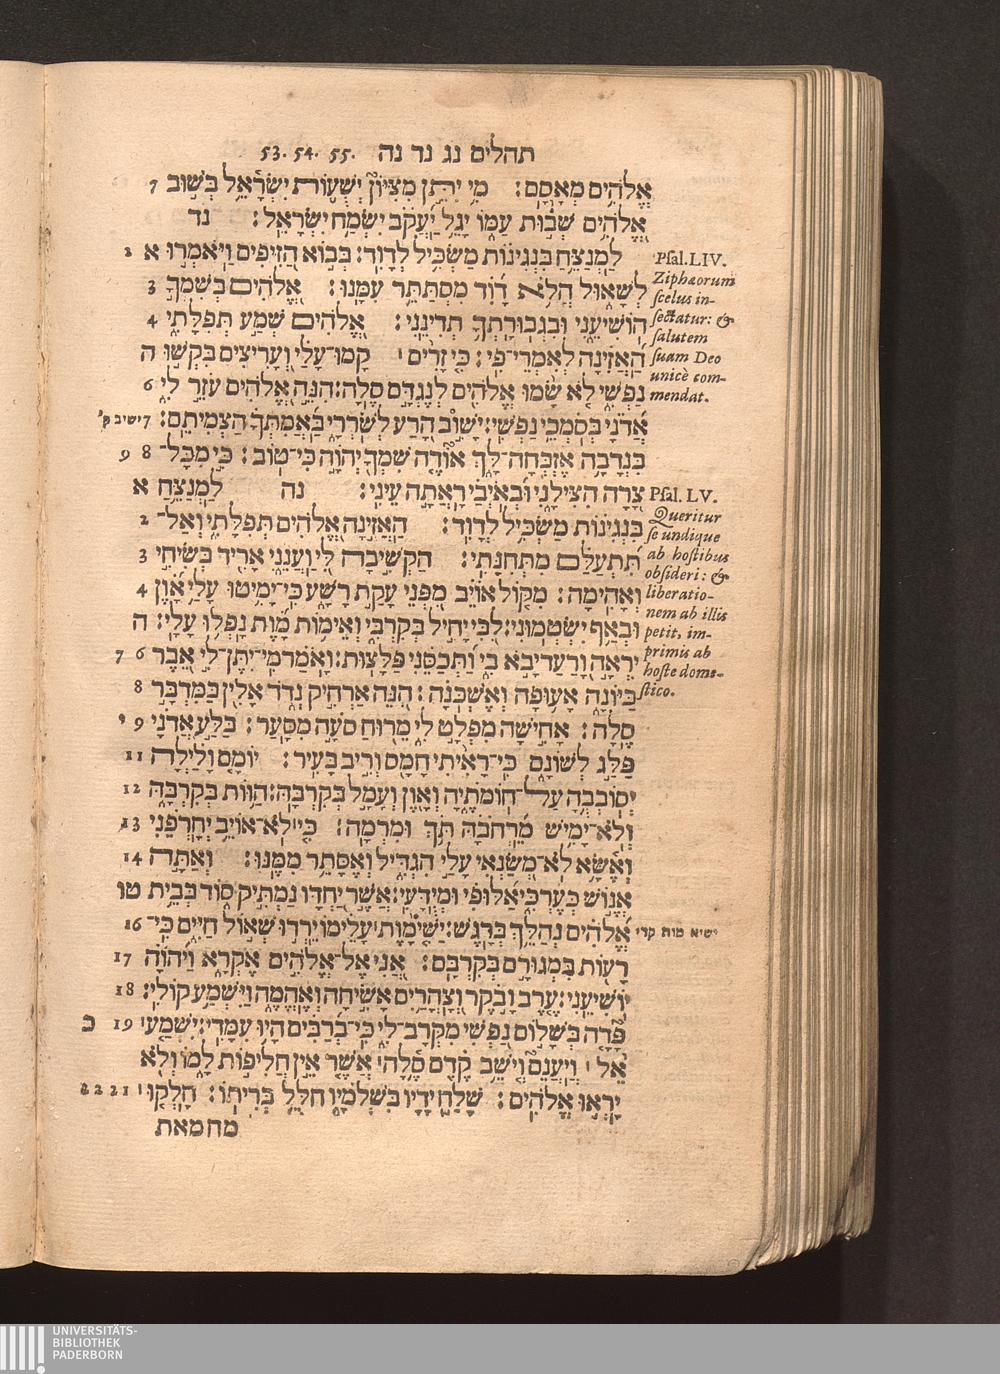 תהלים נג נד נה 53. 54. 55.
אֱלֹהִים מְאָסָם: מִי יִתֵּן מִצִּיּוֹן יְשֻׁעוֹת יִשְׂרָאֵל בְּשׁוּב 7
אֱלֹהִים שְׁבוּת עַמּוֹ יָגֵל יַעֲקֹב יִשְׂמַח יִשְׂרָאֵל: נד
לַמְנַצֵּחַ בִּנְגִינוֹת מַשְׂכִּיל לְדָוִד: בְּבוֹא הַזִּיפִים וַיֹּאמְרוּ א 2
לְשָׁאוּל הֲלֹא דָוִד מִסְתַּתֵּר עִמָּנוּ: אֱלֹהִים בְּשִׁמְךָ 3
הוֹשִׁיעֵנִי וּבִגְבוּרָתְךָ תְדִינֵנִי: אֱלֹהִים שְׁמַע תְּפִלָּתִי 4
הַאֲזִינָה לְאִמְרֵי־פִי: כִּי זָרִים קָמוּ־עָלַי וְעָרִיצִים בִּקְשׁוּ ה
נַפְשִׁי לֹא שָׂמוּ אֱלֹהִים לְנֶגְדָּם סֶלָה: הִנֵּה אֱלֹהִים עֹזֵר לִי 6
אֲדֹנָי בְּסֹמְכֵי נַפְשִׁי: יָשׁוֹב הָרַע לְשֹׁרְרָי בַּאֲמִתְּךָ הַצְמִיתֵם: 7 ישיב ק'
בִּנְדָבָה אֶזְבְּחָה־לָּךְ אוֹדֶה שִּׁמְךָ יְהוָֹה כִּי־טוֹב: כִּי מִכָּל־ 8 9
צָרָה הִצִּילָנִי וּבְאֹיְבַי רָאֲתָה עֵינִי: נה לַמְנַצֵּחַ א
בִּנְגִינוֹת מַשְׂכִּיל לְדָוִד: הַאֲזִינָה אֱלֹהִים תְּפִלָּתִי וְאַל־ 2
תִּתְעַלַּם מִתְּחִנָּתִי: הַקְשִׁיבָה לִּי וַעֲנֵנִי אָרִיד בְּשִׂיחִי 3
וְאָהִימָה: מִקּוֹל אוֹיֵב מִפְּנֵי עָקַת רָשָׁע כִּי־יָמִיטוּ עָלַי אָוֶן 4
וּבְאַף יִשְׂטְמוּנִי: לִבִּי יָחִיל בְּקִרְבִּי וְאֵימוֹת מָוֶת נָפְלוּ עָלָי: ה
יִרְאָה וָרַעַד יָבֹא בִי וַתְּכַסֵּנִי פַּלָּצוּת: וָאֹמַר מִי־יִתֶּן־לִי אֵבֶר 6 7
כַּיּוֹנָה אָעוּפָה וְאֶשְׁכֹּנָה: הִנֵּה אַרְחִיק נְדֹד אָלִין בַּמִּדְבָּר 8
סֶלָה: אָחִישָׁה מִפְלָט לִי מֵרוּחַ סֹעָה מִסָּעַר: בַּלַּע אֲדֹנָי 9 י
פַּלַּג לְשׁוֹנָם כִּי־רָאִיתִי חָמָס וְרִיב בָּעִיר: יוֹמָם וָלַיְלָה 11
יְסוֹבְבֻהָ עַל־חוֹמֹתֶיהָ וְאָוֶן וְעָמָל בְּקִרְבָּהּ: הַוּוֹת בְּקִרְבָּהּ 12
וְלֹא־יָמִישׁ מֵרְחֹבָהּ תֹּךְ וּמִרְמָה: כִּי לֹא־אוֹיֵב יְחָרְפֵנִי 13
וְאֶשָּׂא לֹא־מְשַׂנְאִי עָלַי הִגְדִּיל וְאֶסָּתֵר מִמֶּנּוּ: וְאַתָּה 14
אֱנוֹשׁ כְּעֶרְכִּי אַלּוּפִי וּמְיֻדָּעִי: אֲשֶׁר יַחְדָּו נַמְתִּיק סוֹד בְּבֵית טו
אֱלֹהִים נְהַלֵּךְ בְּרָגֶשׁ: יַשִּׁימָוֶת עָלֵימוֹ יֵרְדוּ שְׁאוֹל חַיִּים כִּי־ 16
רָעוֹת בִּמְגוּרָם בְּקִרְבָּם: אֲנִי אֶל־אֱלֹהִים אֶקְרָא וַיהוָֹה 17
יוֹשִׁיעֵנִי: עֶרֶב וָבֹקֶר וְצָהֳרַיִם אָשִׂיחָה וְאֶהֱמֶה וַיִּשְׁמַע קוֹלִי: 18
פָּדָה בְשָׁלוֹם נַפְשִׁי מִקְּרָב־לִי כִּי־בְרַבִּים הָיוּ עִמָּדִי: יִשְׁמַע 19 כ
אֵל וְיַעֲנֵם וְיֹשֵׁב קֶדֶם סֶלָה אֲשֶׁר אֵין חֲלִיפוֹת לָמוֹ וְלֹא
יָרְאוּ אֱלֹהִים: שָׁלַח יָדָיו בִּשְׁלֹמָיו חִלֵּל בְּרִיתוֹ: חָלְקוּ 21 22
מחמאת
Psal. LIV.
Ziphæorum
scelus in-
sectatur: &
salutem
suam Deo
unicè com-
mendat.
Psal. LV.
Queritur
se undique
ab hostibus
obsideri: &
liberatio-
nem ab illis
petit, im-
primis ab
hoste dome-
stico.
ישיא מות קרי
UNIVERSITÄTS-
BIBLIOTHEK
PADERBORN